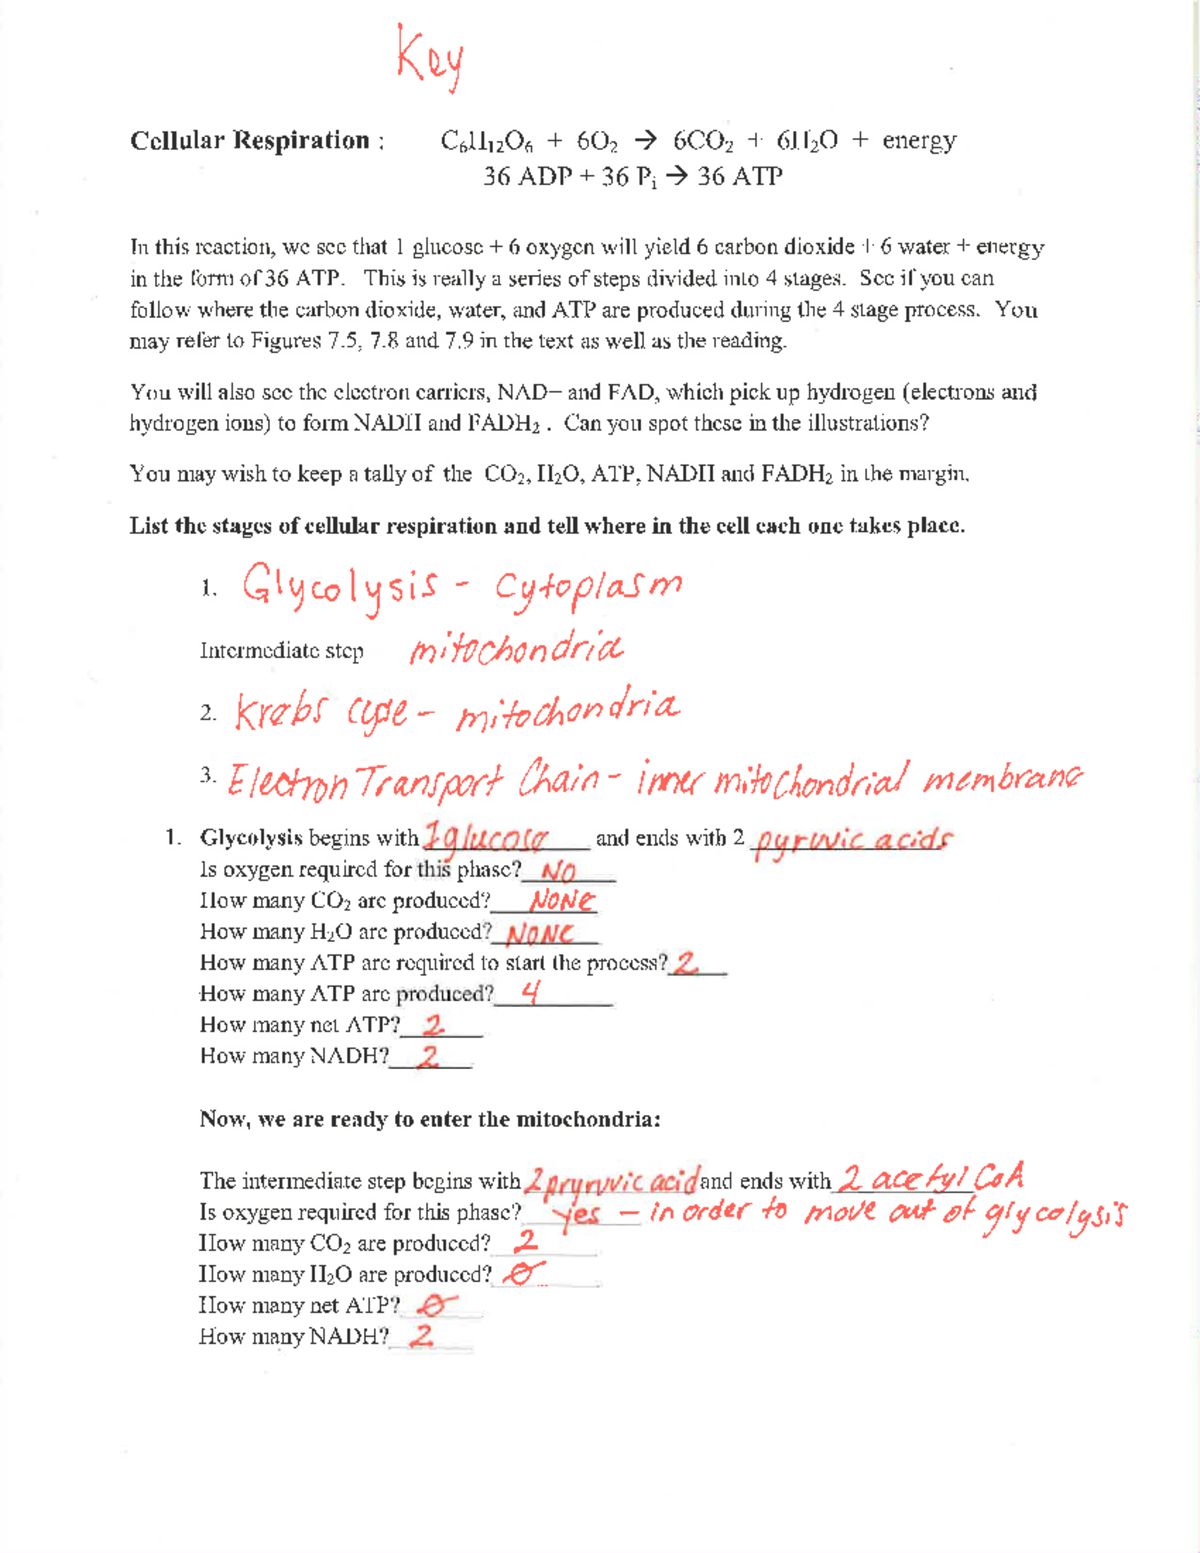 Key
Cellular Respiration : C6H12O6 + 6O2 → 6CO2 + 6H2O + energy
36 ADP + 36 Pi → 36 ATP
In this reaction, we see that 1 glucose + 6 oxygen will yield 6 carbon dioxide + 6 water + energy
in the form of 36 ATP. This is really a series of steps divided into 4 stages. See if you can
follow where the carbon dioxide, water, and ATP are produced during the 4 stage process. You
may refer to Figures 7.5, 7.8 and 7.9 in the text as well as the reading.
You will also see the electron carriers, NAD+ and FAD, which pick up hydrogen (electrons and
hydrogen ions) to form NADH and FADH2 . Can you spot these in the illustrations?
You may wish to keep a tally of the CO2, H2O, ATP, NADH and FADH2 in the margin.
List the stages of cellular respiration and tell where in the cell each one takes place.
1. Glycolysis - cytoplasm
Intermediate step mitochondria
2. Krebs cycle - mitochondria
3. Electron Transport Chain - inner mitochondrial membrane
1. Glycolysis begins with 1 glucose and ends with 2 pyruvic acids
Is oxygen required for this phase? NO
How many CO2 are produced? NONE
How many H2O are produced? NONE
How many ATP are required to start the process? 2
How many ATP are produced? 4
How many net ATP? 2
How many NADH? 2
Now, we are ready to enter the mitochondria:
The intermediate step begins with 2 pryruvic acid and ends with 2 acetyl CoA
Is oxygen required for this phase? yes - in order to move out of glycolysis
How many CO2 are produced? 2
How many H2O are produced? 0
How many net ATP? 0
How many NADH? 2